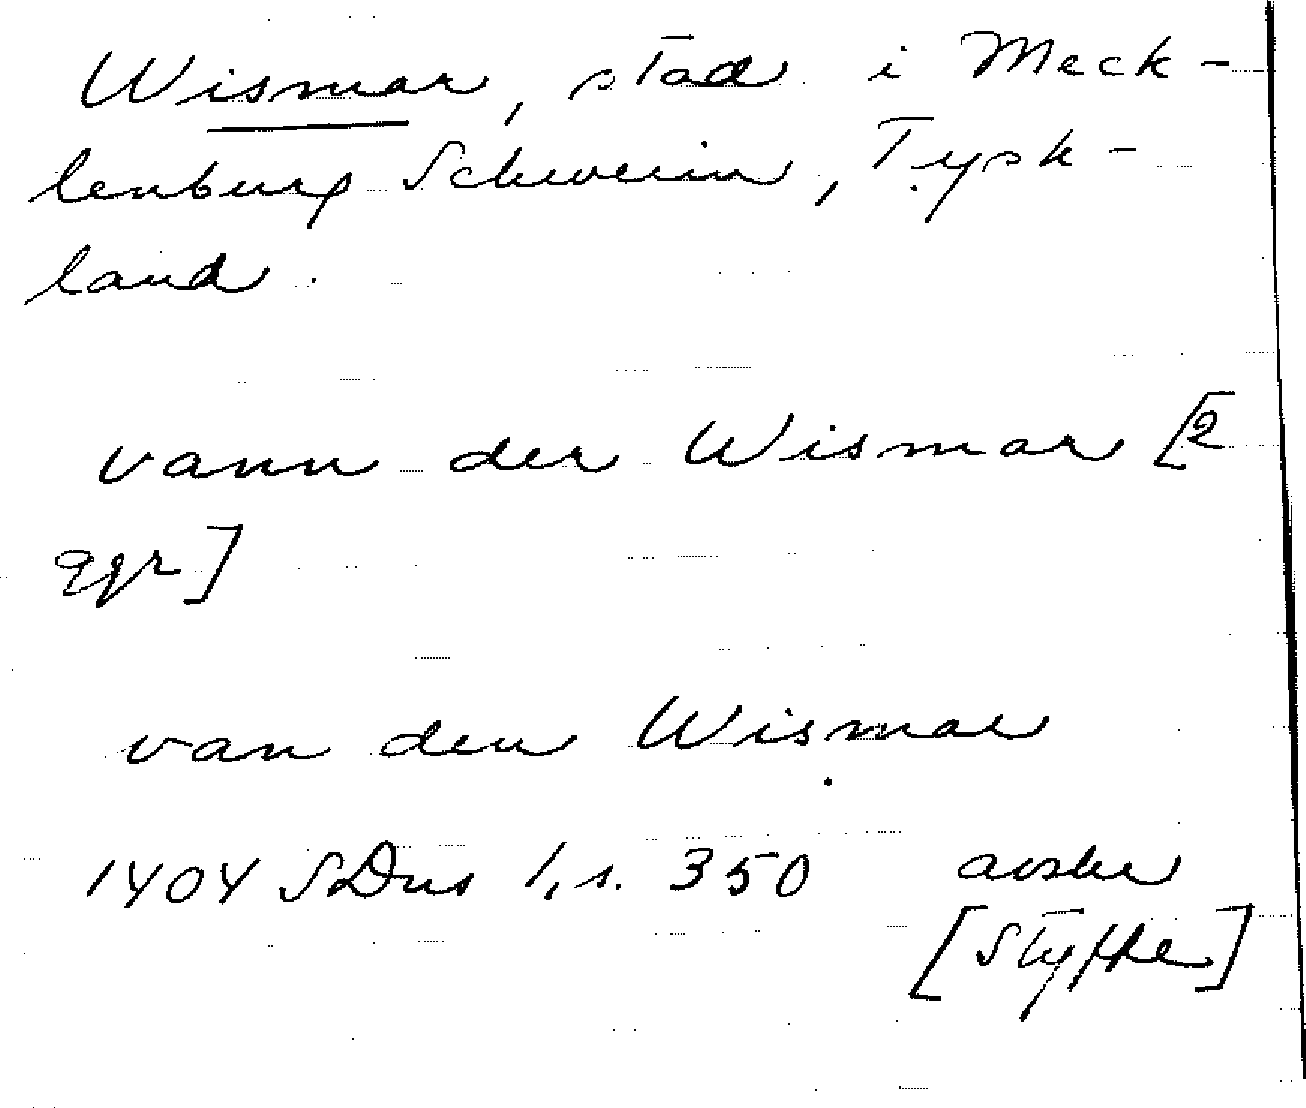 Wismar, stad i Meck-
lenburg Schwerin, Tysk-
land.
vann der Wismar [2
ggr]
van den Wismar
1404 SDns 1, s. 350 avskr
[Styffe]